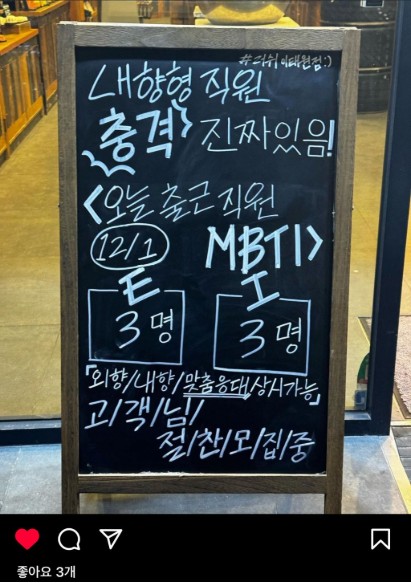 #러쉬이대원점:)
내향형 직원
충격 진짜있음!
<오늘 출근 직원
12/1 MBTI>
E I
3명 3명
「외향/내향/맞춤응대상시가능」
고/객/님/
절/찬/모/집/중
좋아요 3개